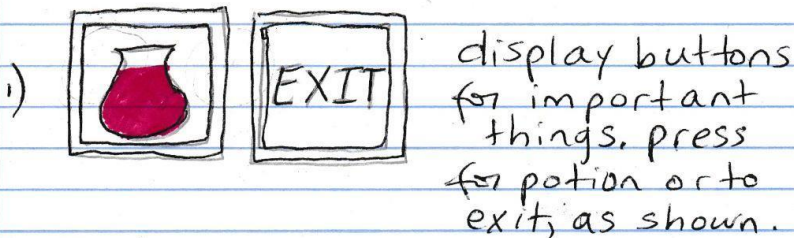 1) EXIT
display buttons
for important
things. press
for potion or to
exit, as shown.